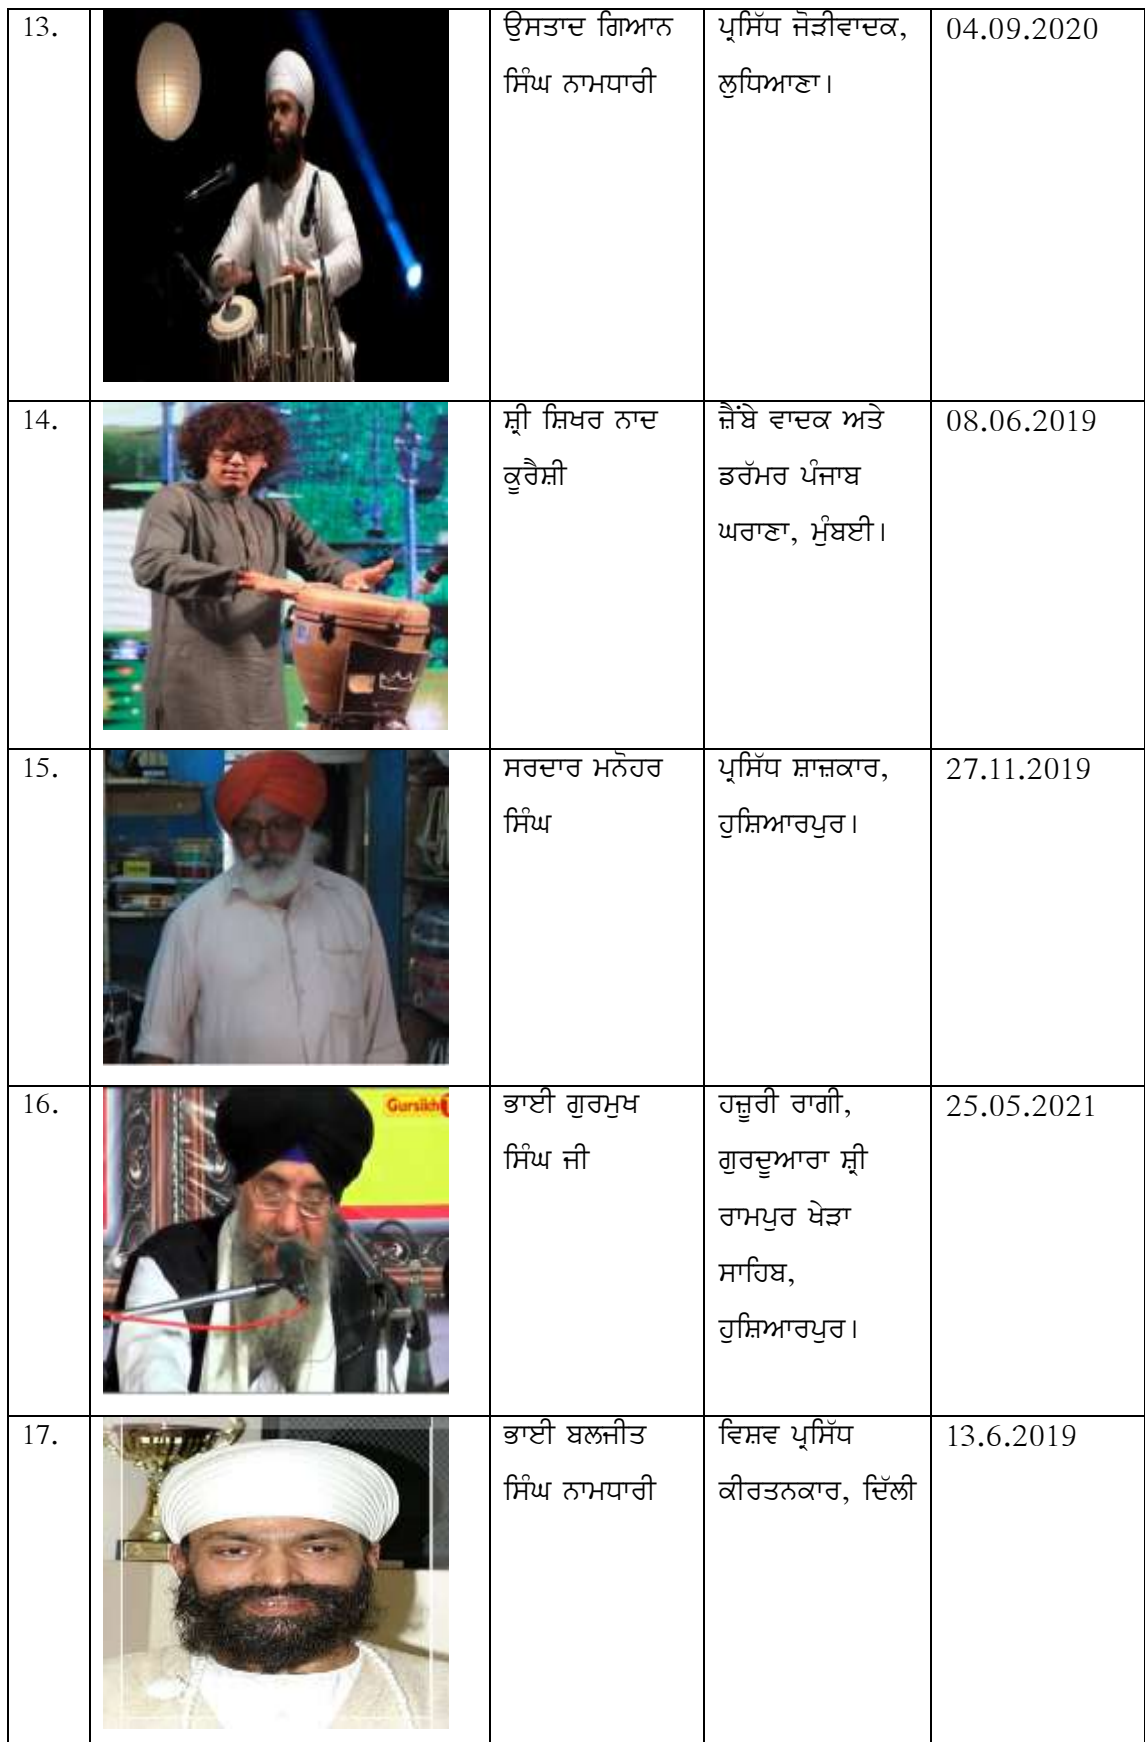 13.
ਉਸਤਾਦ ਗਿਆਨ
ਸਿੰਘ ਨਾਮਧਾਰੀ
ਪ੍ਰਸਿੱਧ ਜੋੜੀਵਾਦਕ,
ਲੁਧਿਆਣਾ।
04.09.2020
14.
ਸ਼੍ਰੀ ਸ਼ਿਖਰ ਨਾਦ
ਕੂਰੈਸ਼ੀ
ਜ਼ੈਂਬੇ ਵਾਦਕ ਅਤੇ
ਡਰੱਮਰ ਪੰਜਾਬ
ਘਰਾਣਾ, ਮੁੰਬਈ।
08.06.2019
15.
ਸਰਦਾਰ ਮਨੋਹਰ
ਸਿੰਘ
ਪ੍ਰਸਿੱਧ ਸ਼ਾਜ਼ਕਾਰ,
ਹੁਸ਼ਿਆਰਪੁਰ।
27.11.2019
16.
Gursikh
ਭਾਈ ਗੁਰਮੁਖ
ਸਿੰਘ ਜੀ
ਹਜ਼ੂਰੀ ਰਾਗੀ,
ਗੁਰਦੂਆਰਾ ਸ਼੍ਰੀ
ਰਾਮਪੁਰ ਖੇੜਾ
ਸਾਹਿਬ,
ਹੁਸ਼ਿਆਰਪੁਰ।
25.05.2021
17.
ਭਾਈ ਬਲਜੀਤ
ਸਿੰਘ ਨਾਮਧਾਰੀ
ਵਿਸ਼ਵ ਪ੍ਰਸਿੱਧ
ਕੀਰਤਨਕਾਰ, ਦਿੱਲੀ
13.6.2019